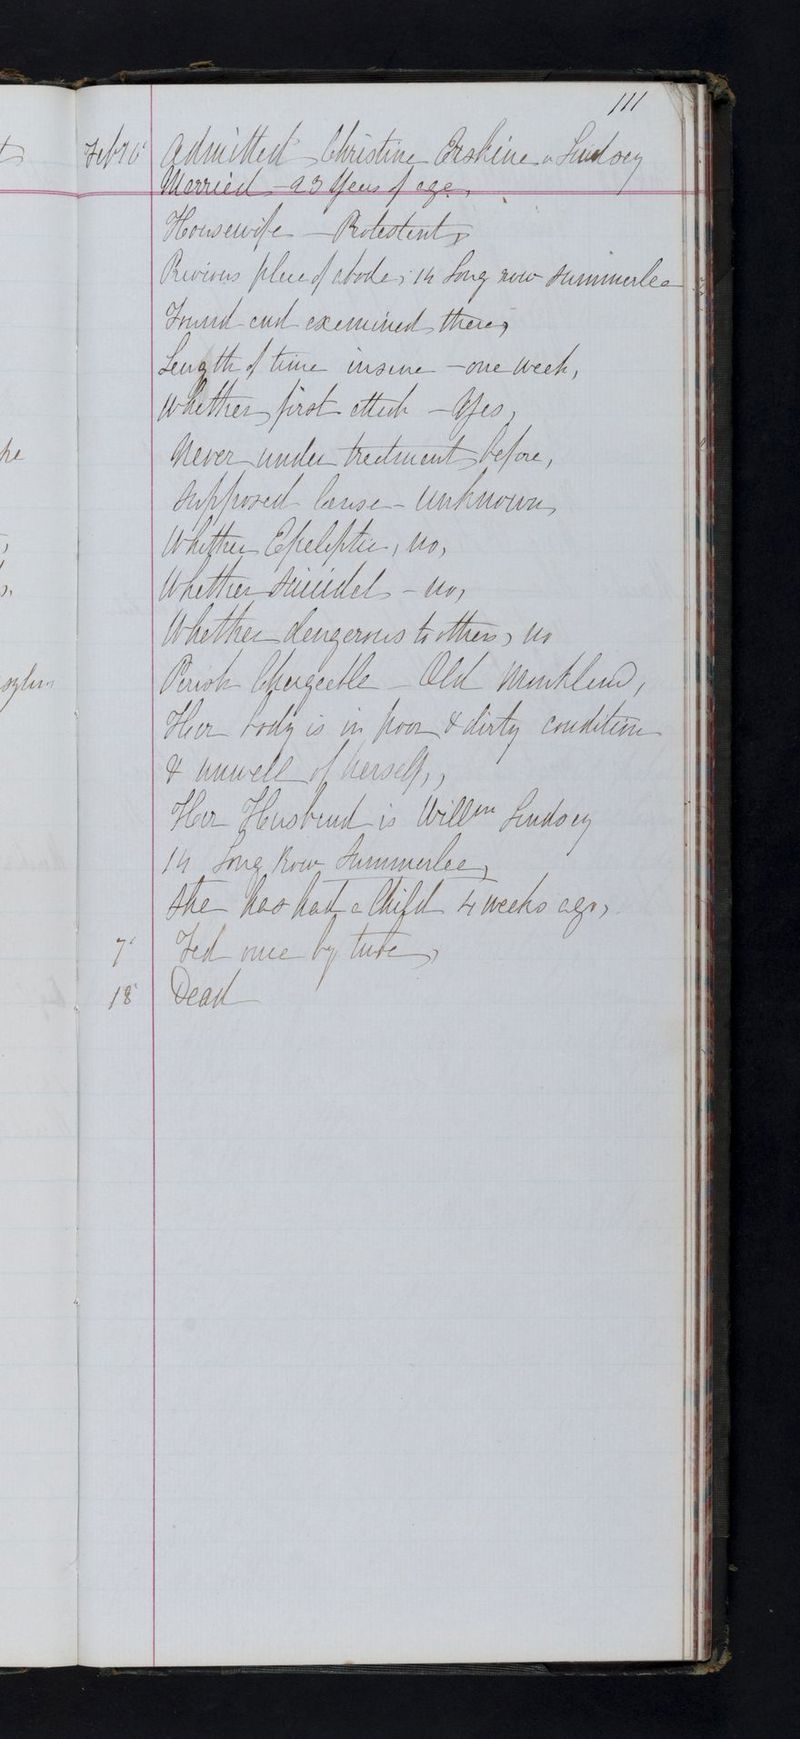 111
Admitted Christina Erskine or Lindsay
Married - 23 Years of age,
Housewife - Protestant,
Previous place of abode, 14 Long row Summerlee
Found and examined there,
Length of time insane - one week,
Whether first attack - Yes,
Never under treatment before,
Supposed Cause - Unknown,
Whether Epileptic, no,
Whether Suicidal - no,
Whether dangerous to others, no
Parish Chargeable - Old Monkland,
Her body is in poor & dirty condition
& unwell of herself,,
Her Husband is Willm Lindsay
14 Long Row Summerlee,
She has had a Child 4 weeks ago,
7 Fed once by tube,
18 Dead